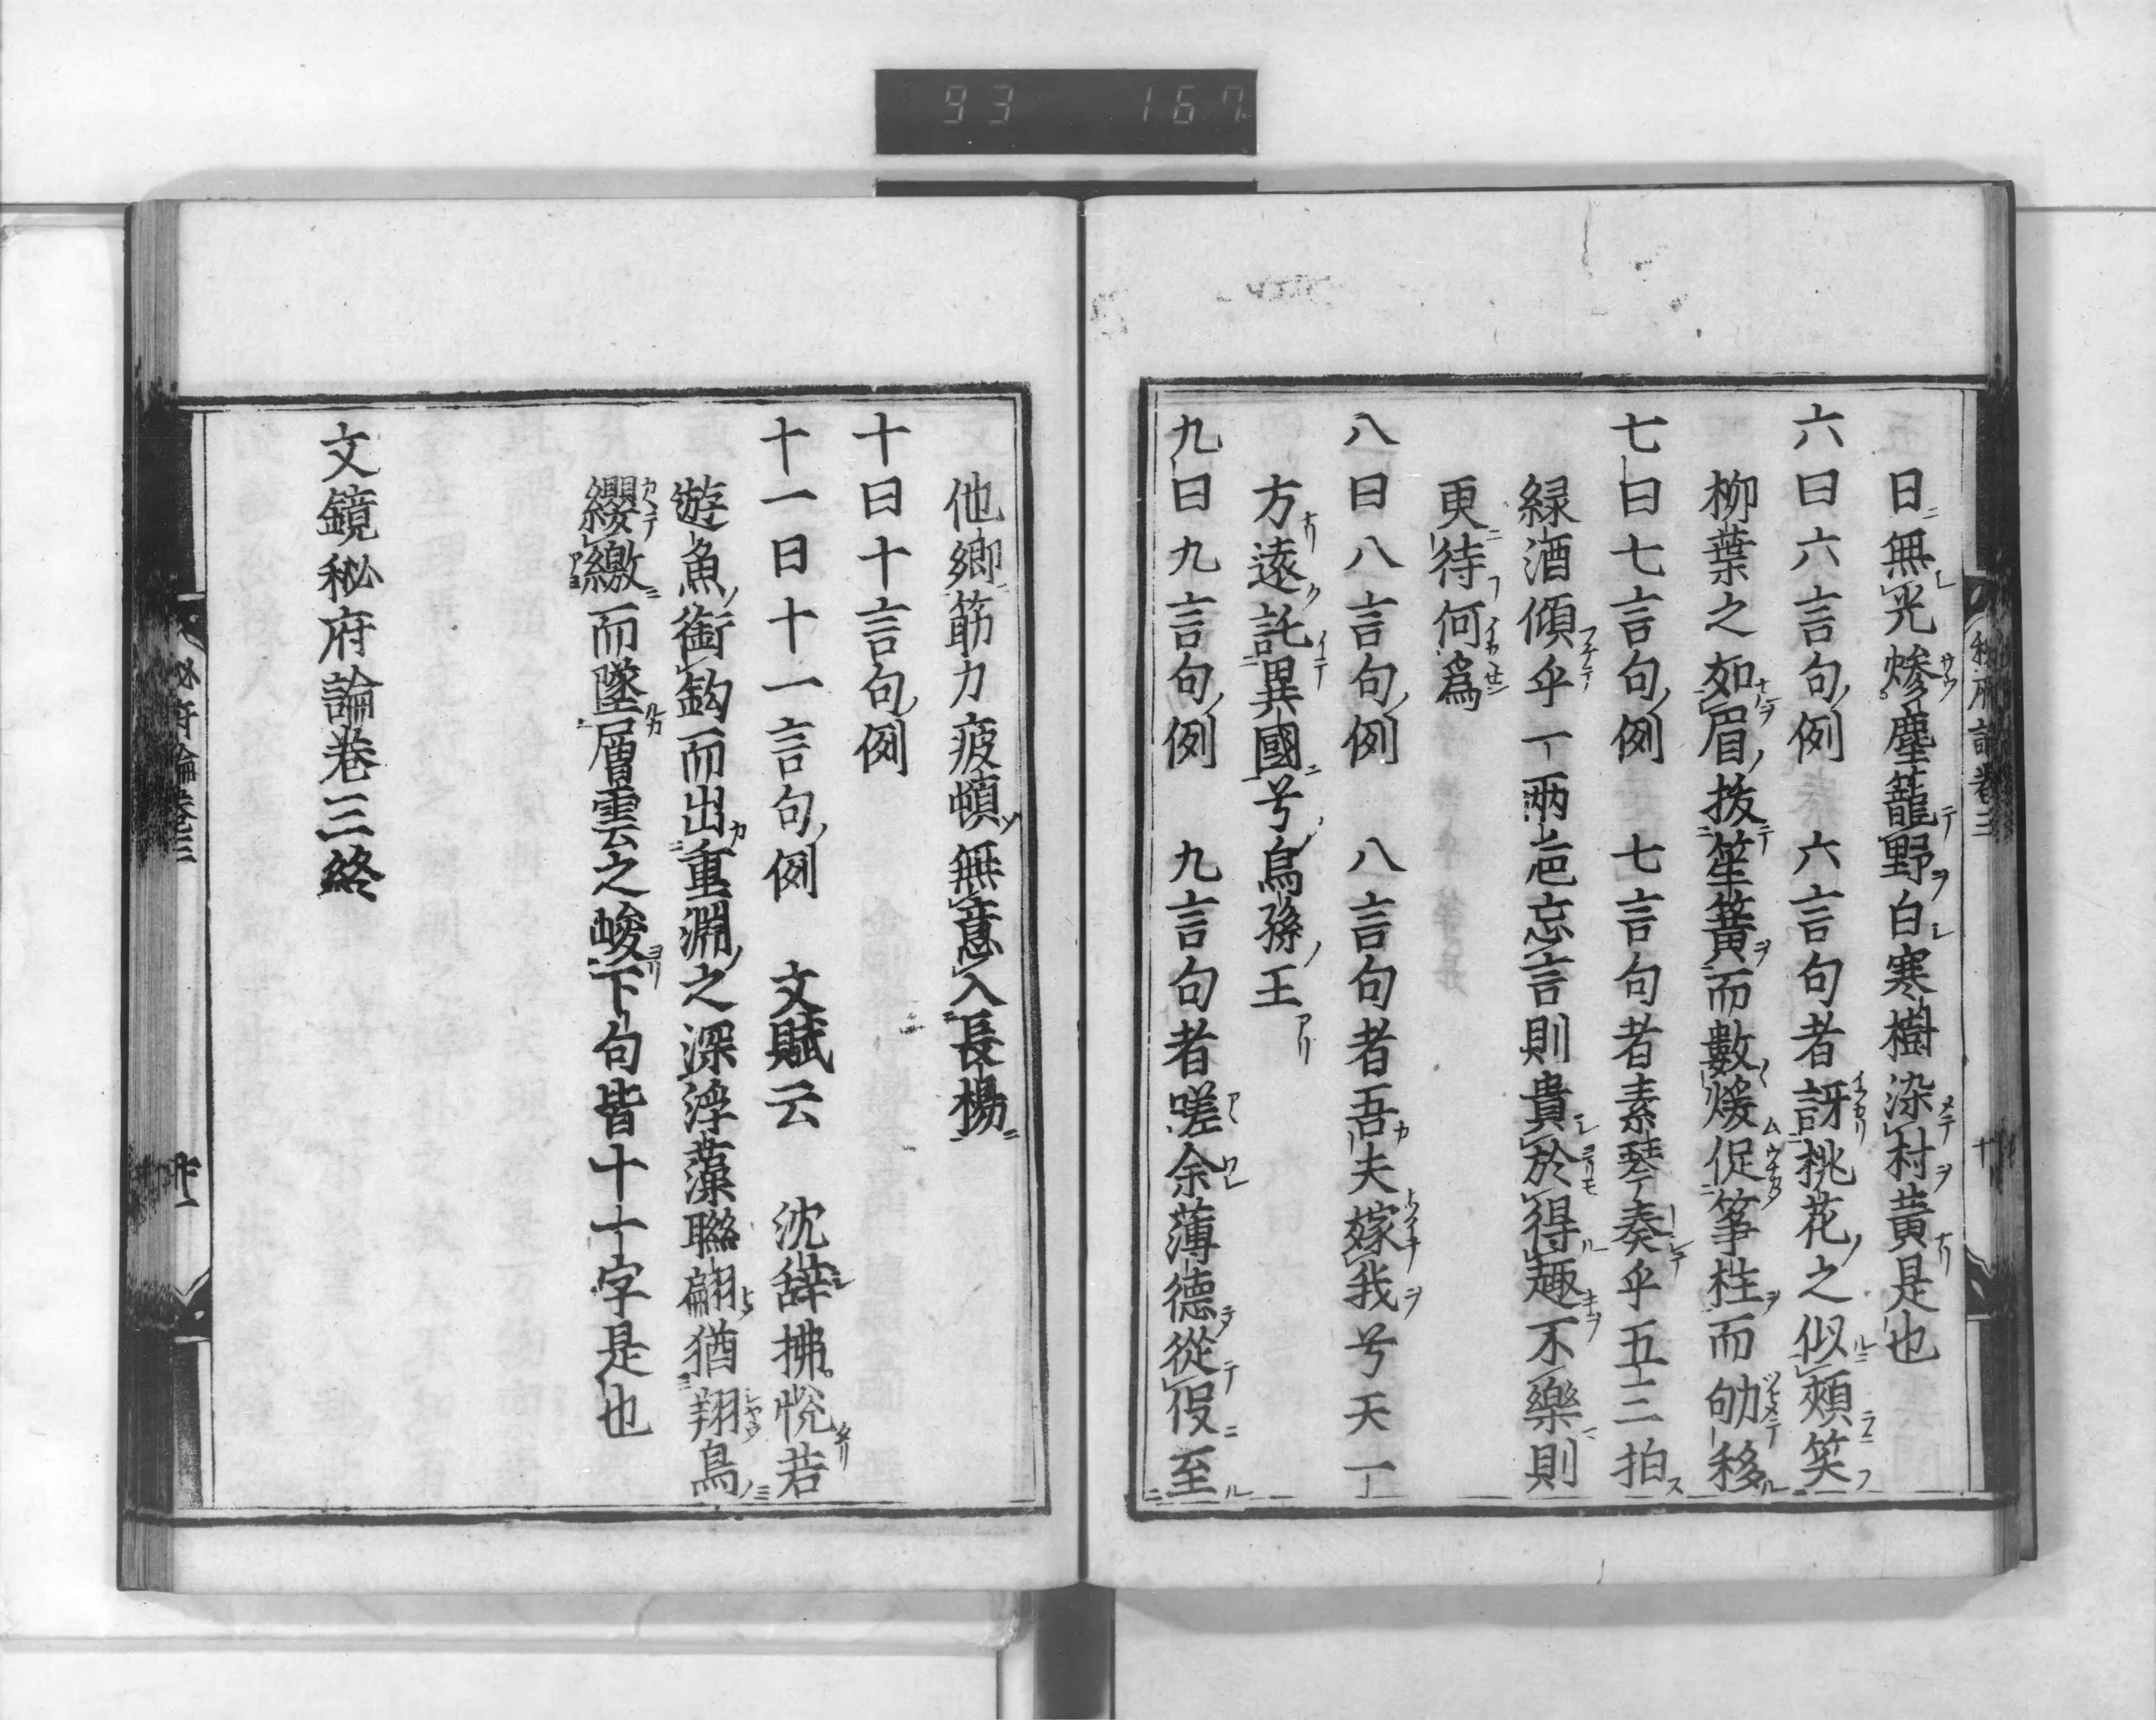 93 167
日無光燉塵籠野白寒樹染村黄是也
六曰六言句例 六言句者訝桃花之似頰笑
柳葉之如眉拔笙簧而數煖促筝柱而劬移
七曰七言句例 七言句者素琴奏乎五三拍
緑酒傾乎一兩卮忘言則貴於得趣不樂則
更待何爲
八曰八言句例 八言句者吾夫嫁我兮天一
方遠託異國兮烏孫王
九曰九言句例 九言句者嗟余薄德從役至
秘府論卷三
他郷筋力疲頓無意入長楊
十曰十言句例
十一曰十一言句例 文賦云 沈辞拂悅若
遊魚銜鈎而出重淵之深浮藻聯翩猶翔鳥
纓繳而墜層雲之峻下句皆十一字是也
文鏡秘府論卷三終
秘府論卷三 廿一